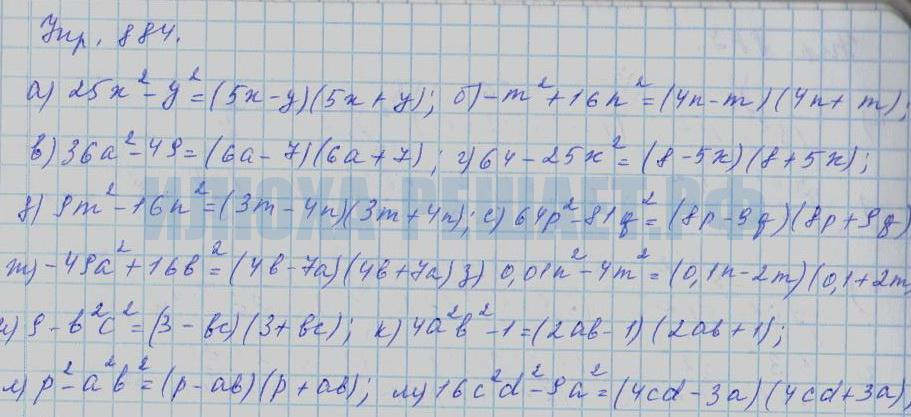 Упр. 884.
а) 25x²-y²=(5x-y)(5x+y); б)-m²+16n²=(4n-m)(4n+m);
в) 36a²-49=(6a-7)(6a+7); г) 64-25x²=(8-5x)(8+5x);
ИЛЮХА-РЕШАЕТ.РФ
д) 9m²-16n²=(3m-4n)(3m+4n); е) 64p²-81q²=(8p-9q)(8p+9q)
ж)-49a²+16в²=(4в-7a)(4в+7a) з) 0,01n²-4m²=(0,1n-2m)(0,1+2m)
и) 9-в²c²=(3-вc)(3+вc); к) 4a²в²-1=(2aв-1)(2aв+1);
л) p²-a²в²=(p-aв)(p+aв); м) 16c²d²-9a²=(4cd-3a)(4cd+3a)